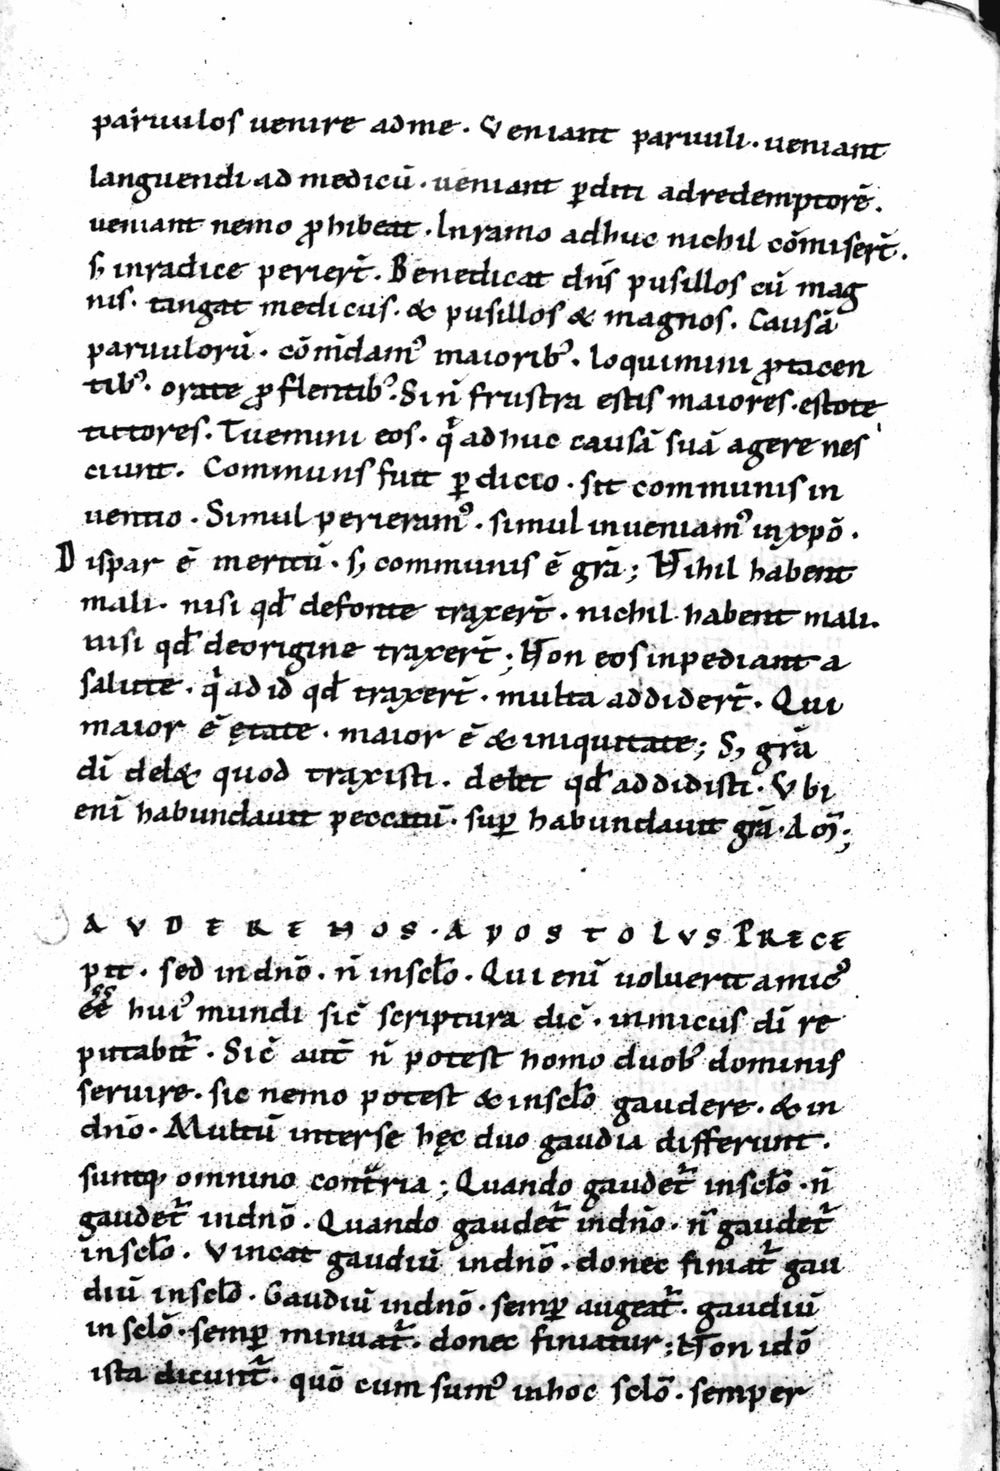 paruulos uenire ad me. Veniant paruuli. ueniant
languendi ad medicū. ueniant ꝑditi ad redemptorē.
ueniant nemo ꝓhibeat. In ramo adhuc nichil cōmiser̄t.
ꝫ in radice perier̄t. Benedicat dn̄s pusillos cū mag
nis. tangat medicus. & pusillos & magnos. Causā
paruulorū. cōm̄dam᾿ maiorib᾿. loquimini ꝓ tacen
tib᾿. orate ꝓ flentib᾿. Si n̄ frustra estis maiores. estote
tutores. Tuemini eos. qͥ adhuc causā suā agere nes
ciunt. Communis fuit ꝑdicio. sit communis in
uentio. Simul perieram᾿. simul inueniam᾿ in xp̄o.
Dispar ē meritū. sꝫ communis ē gr̄a; Nihil habent
mali. nisi qđ de fonte traxer̄t. nichil habent mali.
nisi qđ de origine traxer̄t; Non eos inpediant a
salute. qͥ ad id qđ traxer̄t. multa addider̄t. Qui
maior ē ętate. maior ē & iniquitate; Sꝫ gr̄a
dī del& quod traxisti. delet qđ addidisti. Vbi
enī habundauit peccatū. suꝑ habundauit gr̄a. Am̄;
AVDERE NOS. APOSTOLVS PRECE
pit. sed in dn̄o. n̄ in sclo̅. Qui enī uoluerit amic᾿
ee̅ hui᾿ mundi sic̄ scriptura dic̄. inimicus dī re
putabit̄. Sic̄ aut̄ n̄ potest homo duob᾿ dominis
seruire. sic nemo potest & in sclo̅ gaudere. & in
dn̄o. Multū inter se hęc duo gaudia differunt.
suntqꝫ omnino cont̄ria; Quando gaudet̄ in sclo̅. n̄
gaudet̄ in dn̄o. Quando gaudet̄ in dn̄o. n̄ gaudet̄
in sclo̅. Vincat gaudiū in dn̄o. donec finiat̄ gau
diū in sclo̅. Gaudiū in dn̄o. semꝑ augeat̄. gaudiū
in sclo̅. semꝑ minuat̄. donec finiatur; Non idō
ista dicunt̄. quō cum sum᾿ in hoc sclo̅. semper